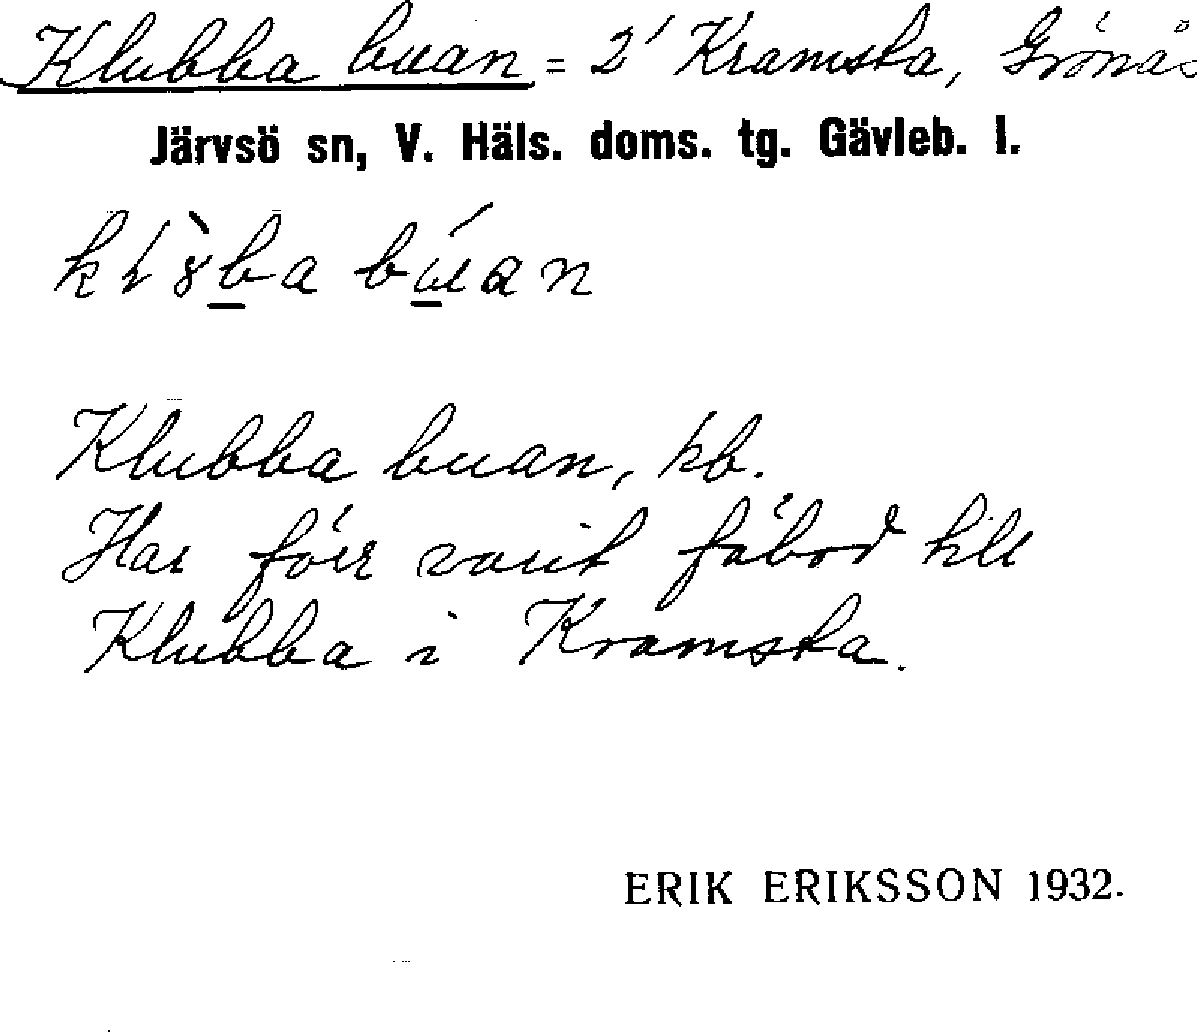 Klubba buan = 2' Kramsta, Grönås
Järvsö sn, V. Häls. doms. tg. Gävleb. l.
buan
Klubba buan, hb.
Har förr varit fäbod till
Klubba i Kramsta.
ERIK ERIKSSON 1932.